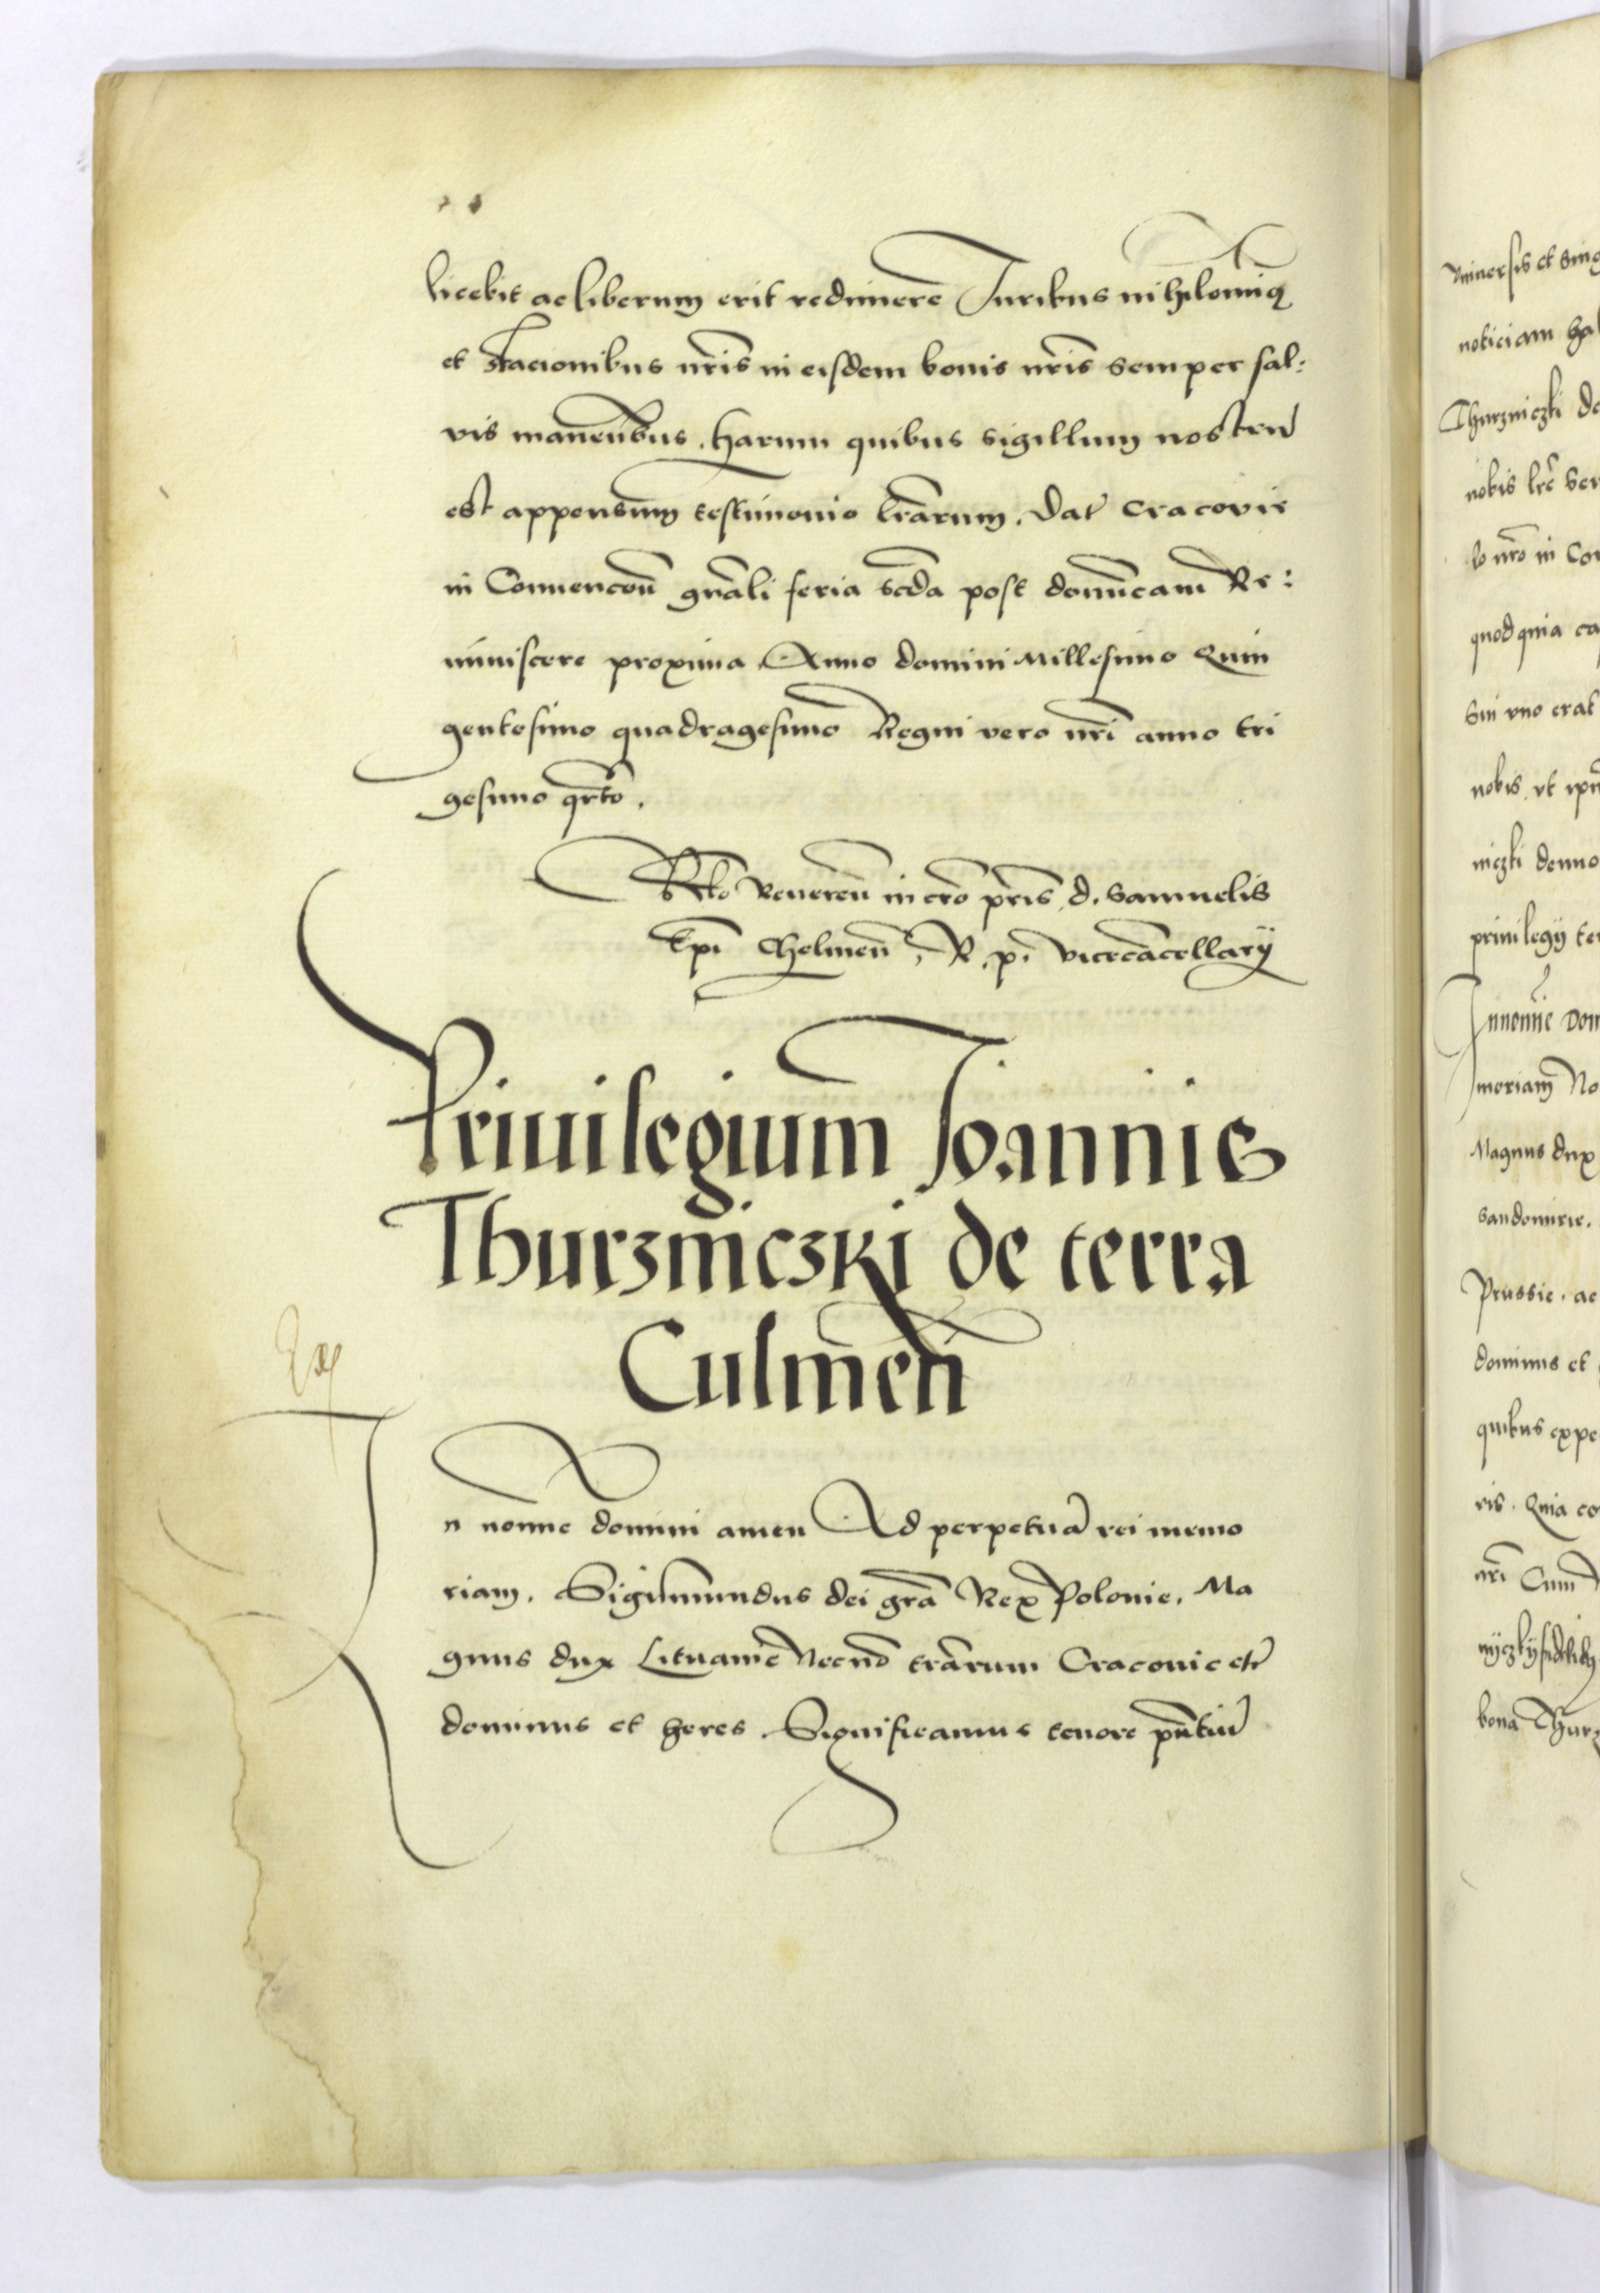 licebit ac liberum erit redimere Juribus nihilomiq
et stacionibus nris in eisdem bonis nris semper sal:
vis manentibus. harum quibus sigillum nostru
est appensum testimonio lrarum. Dat Cracovie
in Conuencoñ gnali feria scda post dominicam Re:
miniscere proxima Anno domini Millesimo Quin
gentesimo quadragesimo Regni vero nri anno tri
gesimo qrto.
Rlo Reueren in cro pris d. Samuelis
Epi Chelmeñ, R. p. vicecancellarij
Priuilegium Joannis
Thurzniczki de terra
Culmeñ
In nomine domini amen Ad perpetua rei memo
riam. Sigismundus dei gra Rex Polonie. Ma
gnus dux Lituanie Necno trarum Cracovie etc
dominus et heres. Significamus tenore pntiu
vniuersis et sing
noticiam ha
Thurzniczki de
nobis lre ser
lo nro in Con
quod quia ca
Sin vno erat
nobis. vt ipm
niczki denuo
priuilegij te
In nomine Dom
moriam No
Magnus dux
Sandomirie.
Prussie. ac
dominus et
quibus expe
ris. Quia co
nri Cum
bona Thurz